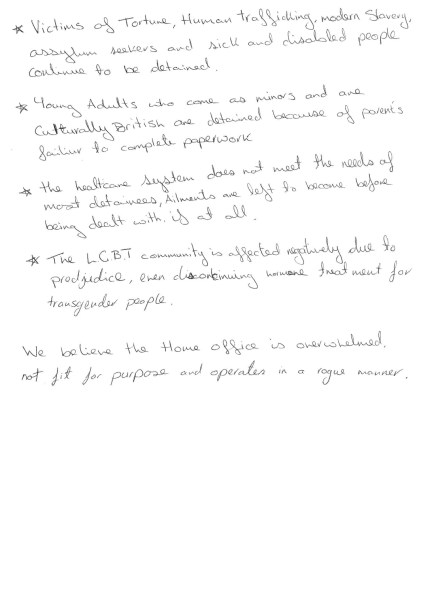 * Victims of Torture, Human trafficking, modern Slavery,
assylum seekers and sick and disabled people
continue to be detained.
* Young Adults who come as minors and are
Culturally British are detained because of parent's
failiur to complete paperwork
* the healtcare system does not meet the needs of
most detainees, Ailments are left to become before
being dealt with, if at all.
* The L.G.B.T community is affected negatively due to
predjudice, even discontinuing hormone treatment for
transgender people.
We believe the Home office is overwhelmed.
not fit for purpose and operates in a rogue manner.